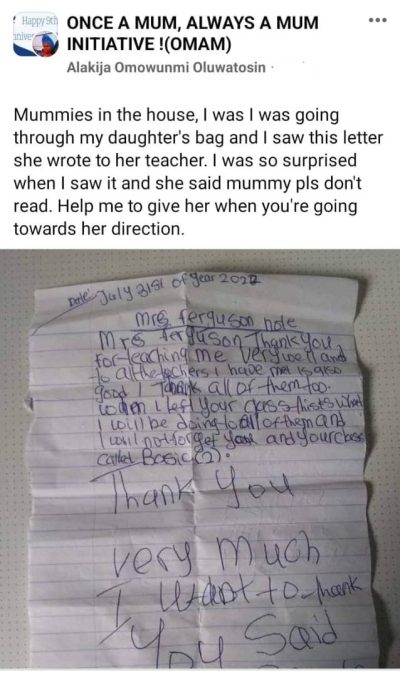 Happy 9th
ONCE A MUM, ALWAYS A MUM
INITIATIVE !(OMAM)
Alakija Omowunmi Oluwatosin ·
Mummies in the house, I was I was going
through my daughter's bag and I saw this letter
she wrote to her teacher. I was so surprised
when I saw it and she said mummy pls don't
read. Help me to give her when you're going
towards her direction.
Date: July 31st of year 2022
Mrs ferguson note
Mrs ferguson Thank you
for teaching me very well and
to all the teachers I have met is also
good I Thank all of them too.
when I left your class this is what
I will be doing to all of them and
I will not forget you and your class
called Basic (2).
Thank You
very much
I want to thank
You Said